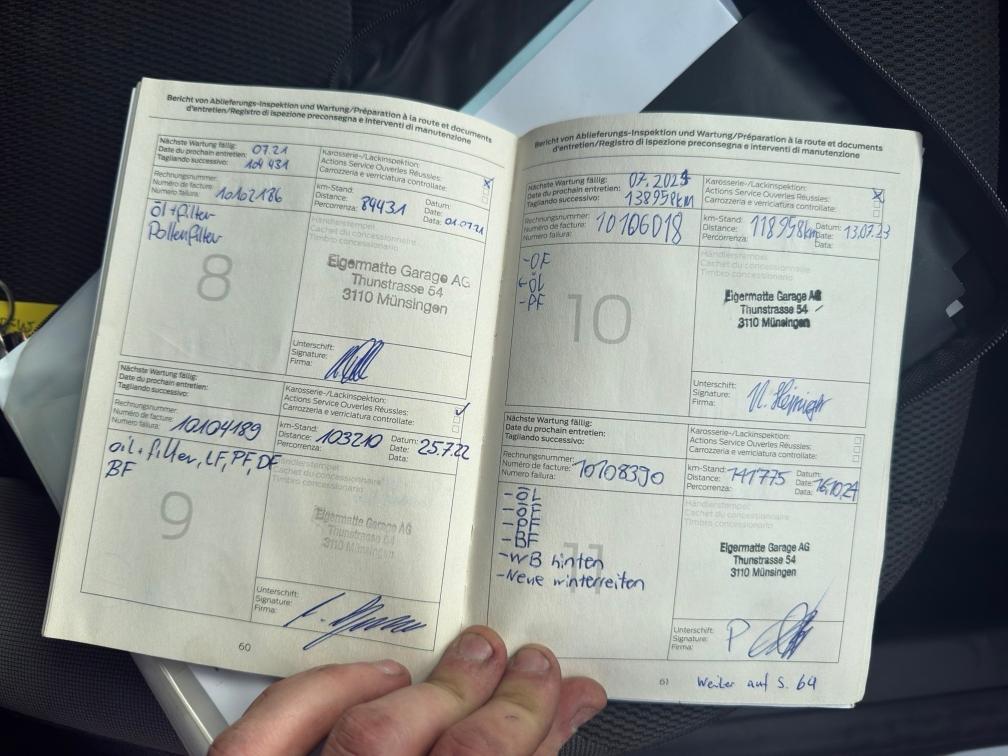 Bericht von Ablieferungs-Inspektion und Wartung/Préparation à la route et documents
d'entretien/Registro di ispezione preconsegna e interventi di manutenzione
Nächste Wartung fällig: 07.21
Date du prochain entretien:
Tagliando successivo: 104 431
Karosserie-/Lackinspektion:
Actions Service Ouverles Réussles:
Carrozzeria e verriciatura controllate:
Rechnungsnummer:
Numéro de facture:
Numero failura: 10102186
km-Stand:
Distance: 89431
Percorrenza:
Datum:
Date:
Data: 01.07.21
öl+filter
Pollenfilter
8
Händlerstempel
Cachet du concessionnaire
Timbro concessionario
Eigermatte Garage AG
Thunstrasse 54
3110 Münsingen
Unterschift:
Signature:
Firma:
Nächste Wartung fällig:
Date du prochain entretien:
Tagliando successivo:
Karosserie-/Lackinspektion:
Actions Service Ouverles Réussles:
Carrozzeria e verriciatura controllate:
Rechnungsnummer:
Numéro de facture:
Numero failura: 10104189
km-Stand:
Distance: 103210
Percorrenza:
Datum: 25.7.22
Date:
Data:
oil+filter, LF, PF, DF
BF
9
Händlerstempel
Cachet du concessionnaire
Timbro concessionario
Eigermatte Garage AG
Thunstrasse 54
3110 Münsingen
Unterschift:
Signature:
Firma:
60
Bericht von Ablieferungs-Inspektion und Wartung/Préparation à la route et documents
d'entretien/Registro di ispezione preconsegna e interventi di manutenzione
Nächste Wartung fällig: 07.2024
Date du prochain entretien:
Tagliando successivo: 138958km
Karosserie-/Lackinspektion:
Actions Service Ouverles Réussles:
Carrozzeria e verriciatura controllate:
Rechnungsnummer:
Numéro de facture: 10106018
Numero failura:
km-Stand:
Distance: 118958km
Percorrenza:
Datum: 13.07.23
Date:
Data:
-OF
-ÖL
-PF
10
Händlerstempel
Cachet du concessionnaire
Timbro concessionario
Eigermatte Garage AG
Thunstrasse 54
3110 Münsingen
Unterschift:
Signature:
Firma:
Nächste Wartung fällig:
Date du prochain entretien:
Tagliando successivo:
Karosserie-/Lackinspektion:
Actions Service Ouverles Réussles:
Carrozzeria e verriciatura controllate:
Rechnungsnummer:
Numéro de facture: 10108390
Numero failura:
km-Stand:
Distance: 141775
Percorrenza:
Datum:
Date: 16.10.24
Data:
-ÖL
-ÖF
-PF
-BF
-WB hinten
-Neue winterreifen
11
Händlerstempel
Cachet du concessionnaire
Timbro concessionario
Eigermatte Garage AG
Thunstrasse 54
3110 Münsingen
Unterschift:
Signature:
Firma:
61
Weiter auf S. 64